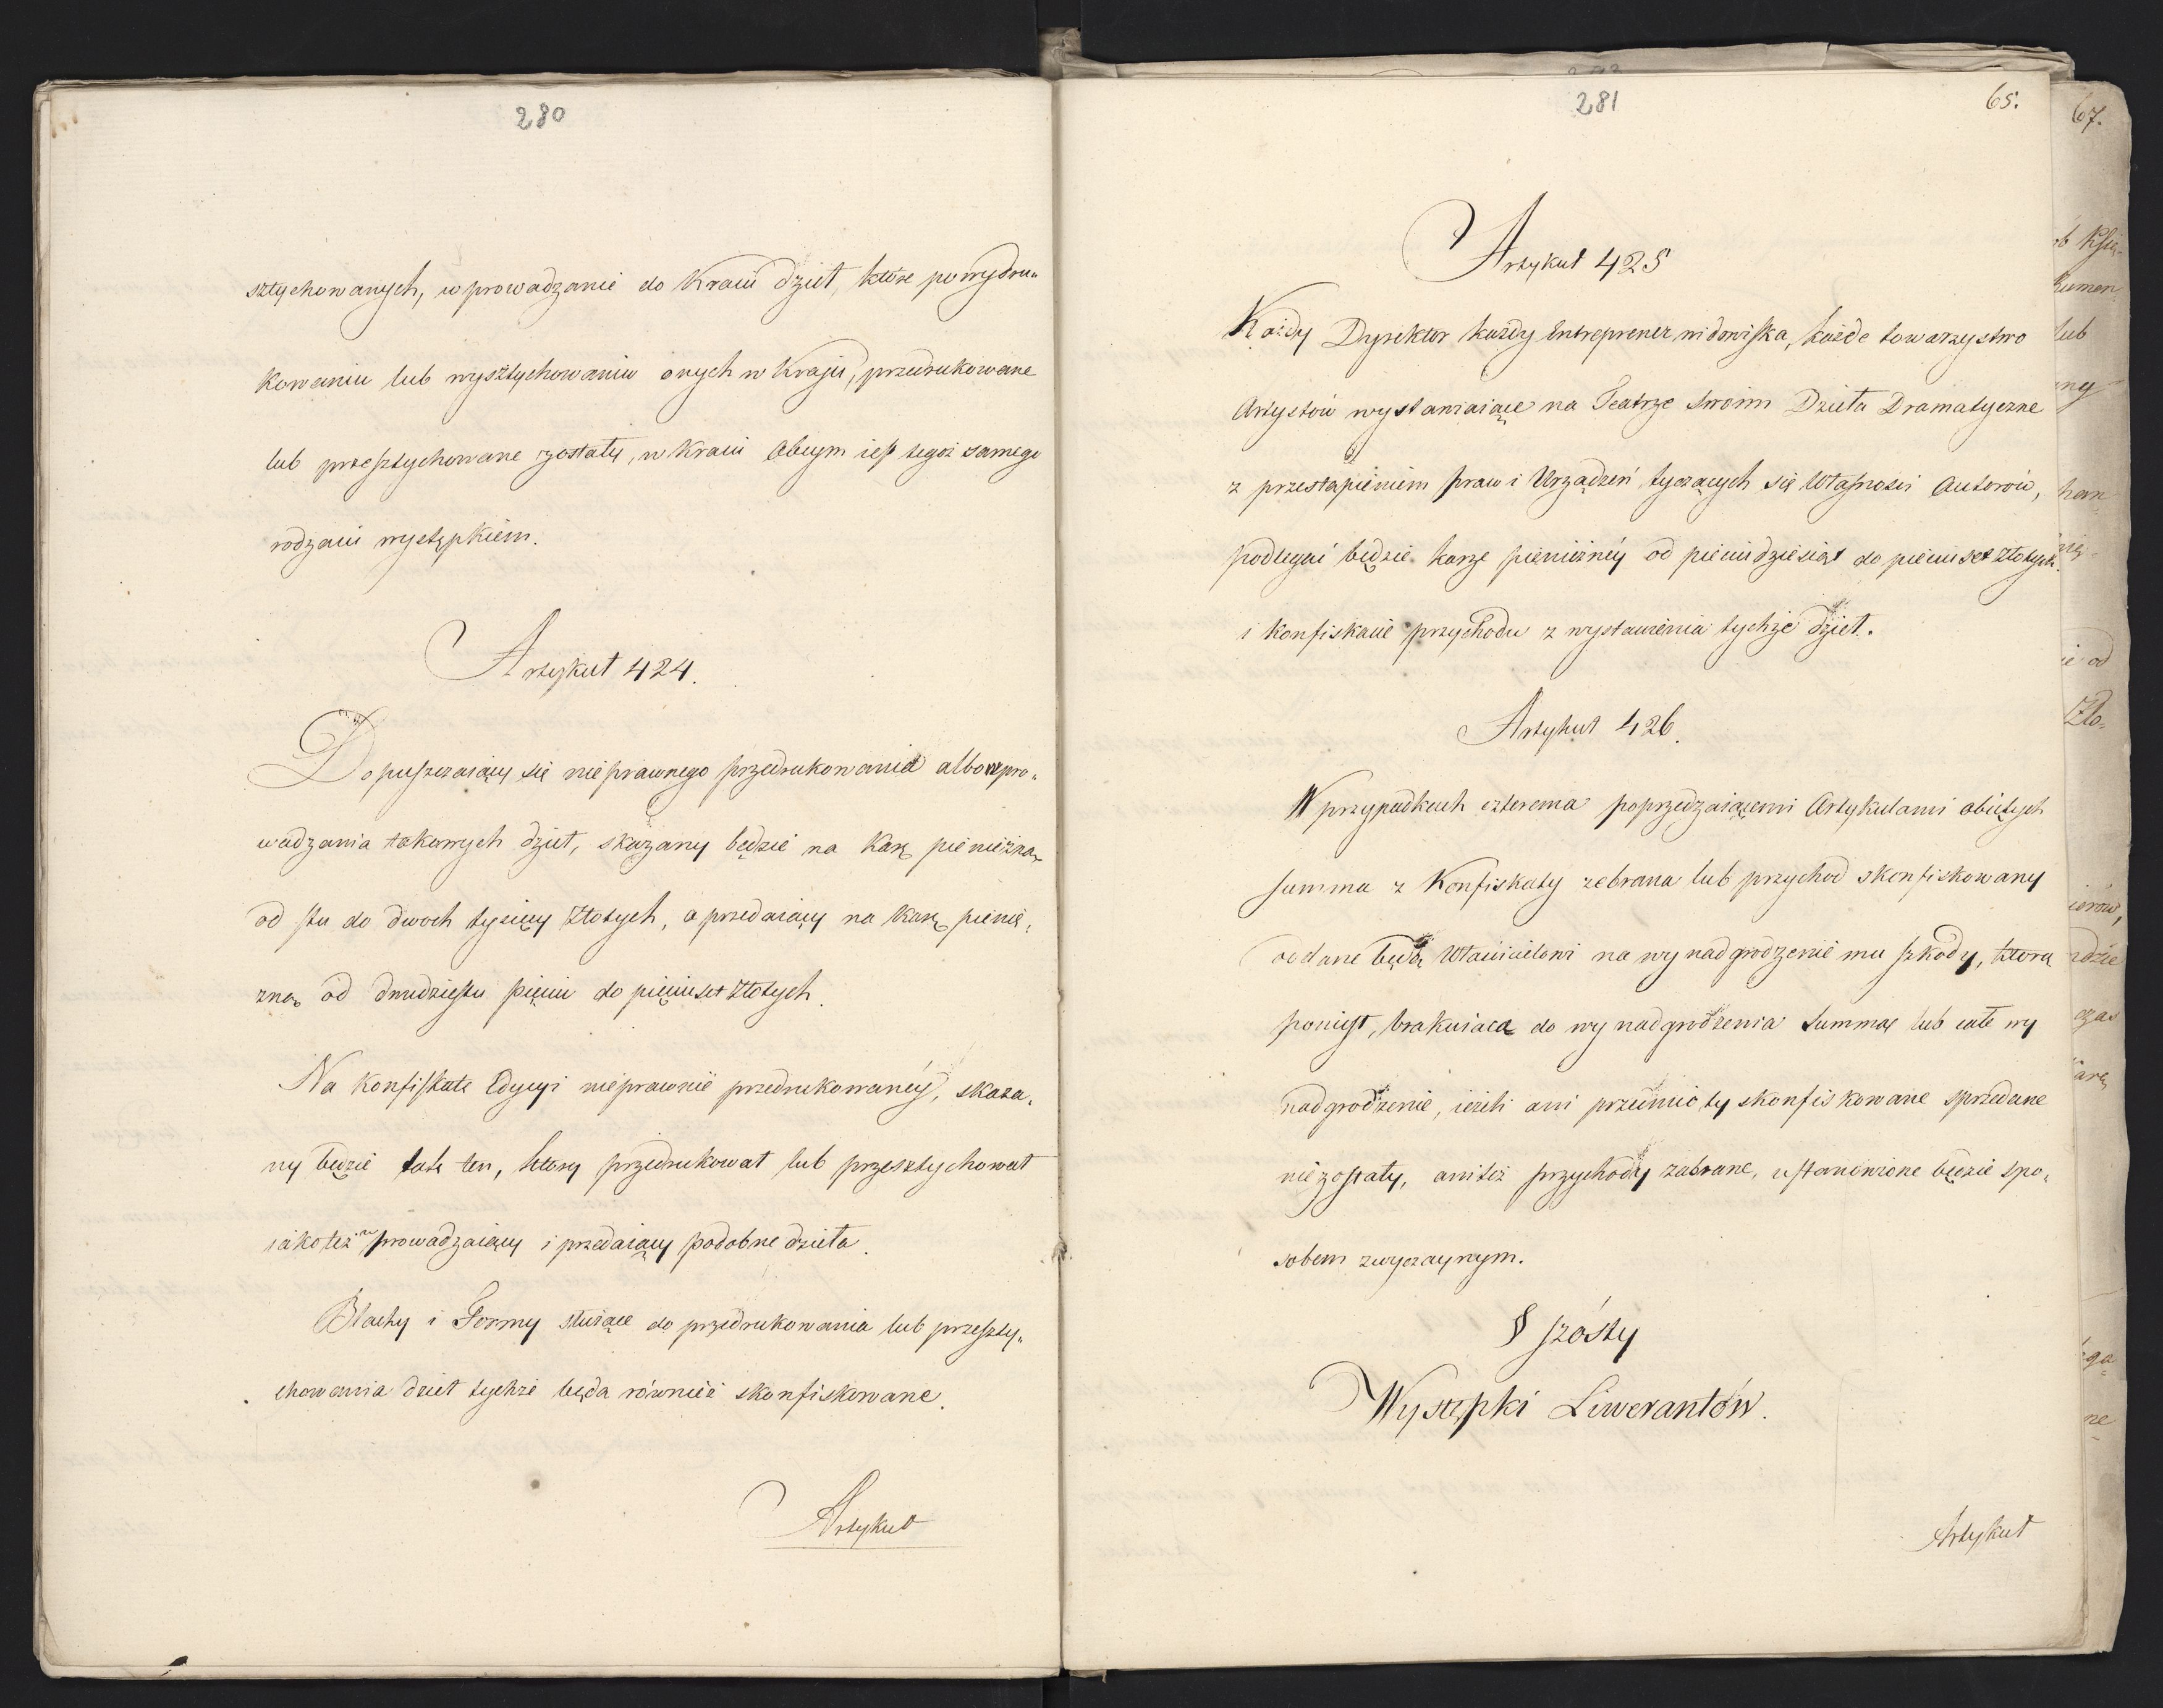 280
sztychowanych, wprowadzanie do Kraiu dzieł, które po wydru„
kowaniu lub wysztychowaniu onych w Kraju, przedrukowane
lub przesztychowane zostały, w Kraiu Obcym iest tegoż samego
rodzaiu występkiem.
Artykuł 424.
Dopuszczaiący się nieprawnego przedrukowania albo wpro„
wadzania takowych dzieł, skazany będzie na karę pieniężną
od stu do dwoch tysięcy Złotych, a przedaiący na karę pienię„
żną od dwudziestu pięciu do pięciuset Złotych.
Na Konfiskatę Edycyi nieprawnie przedrukowanéy, skaza„
ny będzie tak ten, ktory przedrukował lub przesztychował
iako też wprowadzaiący i przedaiący podobne dzieła.
Blachy i Formy służące do przedrukowania lub przeszty„
chowania dzieł tychże będą również skonfiskowane.
Artykuł
281
65.
Artykuł 425
Każdy Dyrektor każdy Entreprener widowiska, każde towarzystwo
Artystów wystawiaiące na Teatrze swoim Dzieła Dramatyczne
z przestąpieniem praw i Urządzeń tyczących się Własności Autorów,
podlegać będzie karze pieniężnéy od pięciudziesiąt do pięciuset Złotych.
i konfiskacie przychodu z wystawienia tychże dzieł.
Artykuł 426.
W przypadkach czterema poprzedzaiącemi Artykułami obiętych
summa z Konfiskaty zebrana lub przychod skonfiskowany
oddane będą Właścicielowi na wynadgrodzenie mu szkody, którą
poniosł, brakuiącą do wynadgrodzenia summę lub całe wy
nadgrodzenie, ieżeli ani przedmioty skonfiskowane sprzedane
nie zostały, ani też przychody zabrane, ustanowione będzie spo„
sobem zwyczaynym.
§ szósty
Występki Liwerantów.
Artykuł
67.